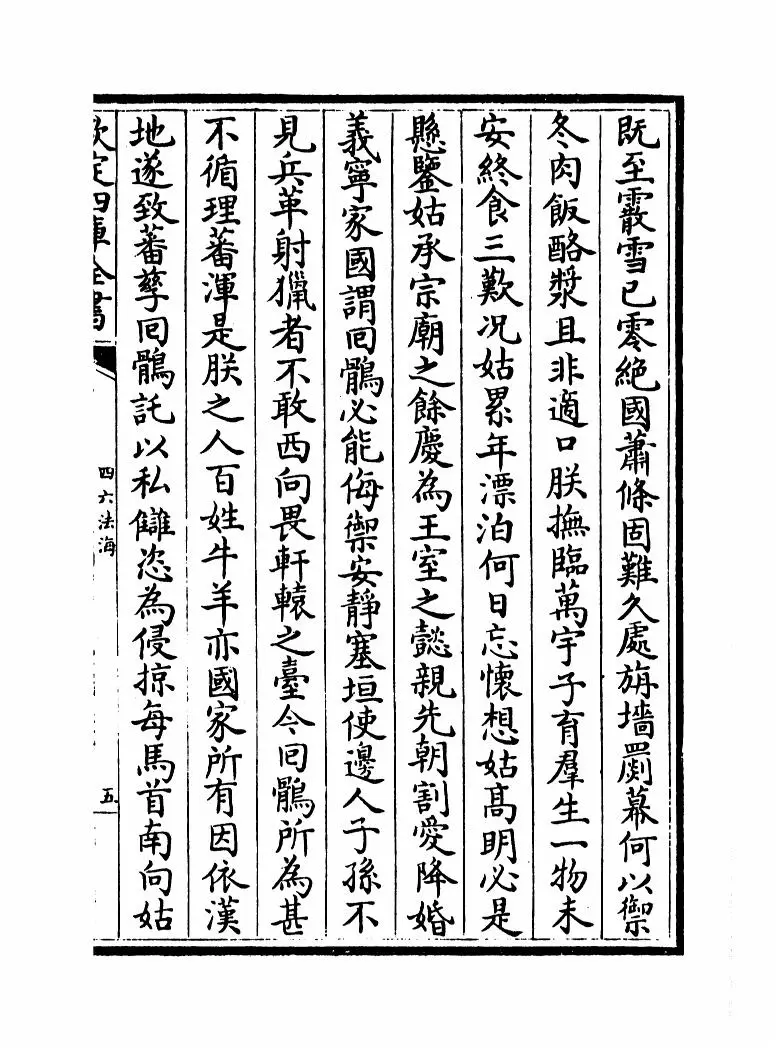 既至霰雪已零絶國蕭條固難久處旃墻罽幕何以禦
冬肉飯酪漿且非適口朕撫臨萬宇子育羣生一物未
安終食三歎况姑累年漂泊何日忘懷想姑髙明必是
懸鑒姑承宗廟之餘慶為王室之懿親先朝割愛降婚
義寧家國謂回鶻必能侮禦安靜塞垣使邊人子孫不
見兵革射獵者不敢西向畏軒轅之臺今回鶻所為甚
不循理蕃渾是朕之人百姓牛羊亦國家所有因依漢
地遂致蕃孳回鶻託以私讎恣為侵掠每馬首南向姑
欽定四庫全書
四六法海
五